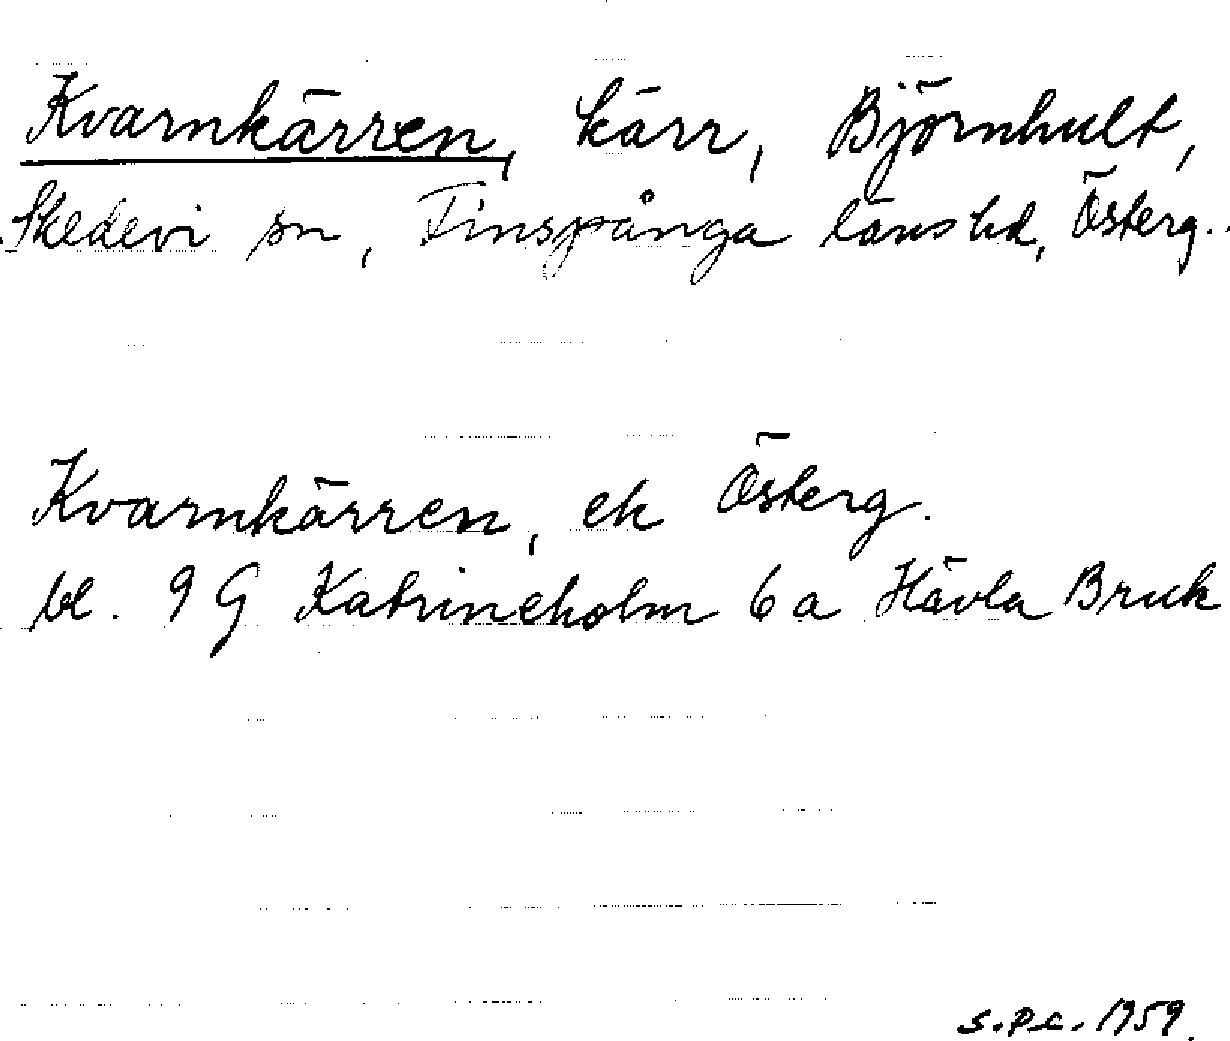 Kvarnkärren, kärr, Björnhult,
Skedevi sn, Finspånga läns hd, Österg.
Kvarnkärren, ek Österg.
bl. 9 G Katrineholm 6 a Hävla Bruk
s.p.c. 1959.